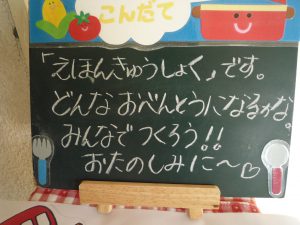 こんだて
「えほんきゅうしょく」です。
どんなおべんとうになるかな。
みんなでつくろう!!
おたのしみに～♡